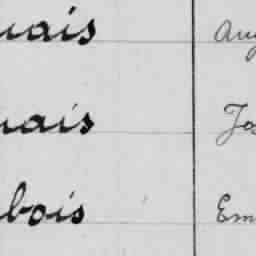 uais Aug
uais Jos
bois Em